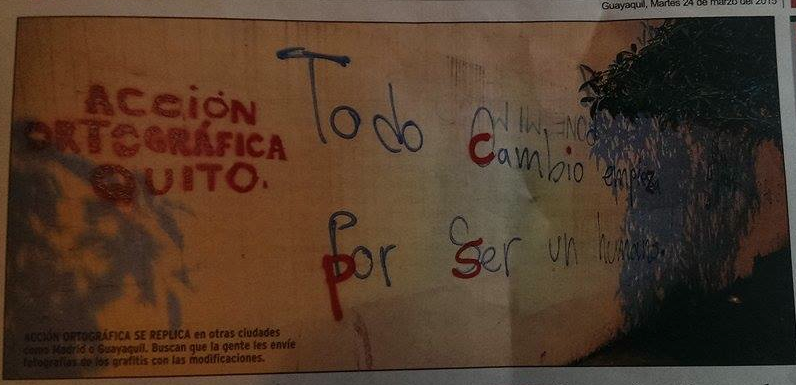 Guayaquil, Martes 24 de marzo del 2015
ACCIÓN
ORTOGRÁFICA
QUITO.
Todo cambio empieza
por ser un humano.
ACCIÓN ORTOGRÁFICA SE REPLICA en otras ciudades
como Madrid o Guayaquil. Buscan que la gente les envíe
fotografías de los grafitis con las modificaciones.